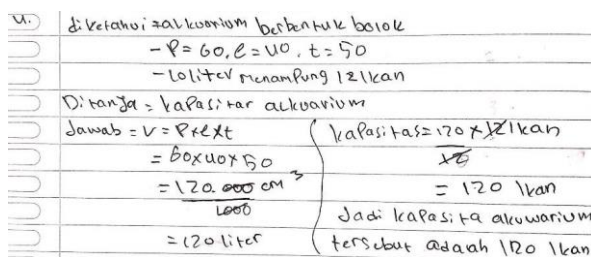 4.) diketahui = alkuarium berbentuk balok
- P = 60, l = 40, t = 50
- 10 liter menampung 12 ikan
Ditanya = kapasitas alkuarium
Jawab = V = P x l x t
= 60 x 40 x 50
= 120.000 cm³
1000
= 120 liter
kapasitas = 120 x 12 ikan
10
= 120 ikan
Jadi kapasita akuwarium
tersebut adaah 120 ikan